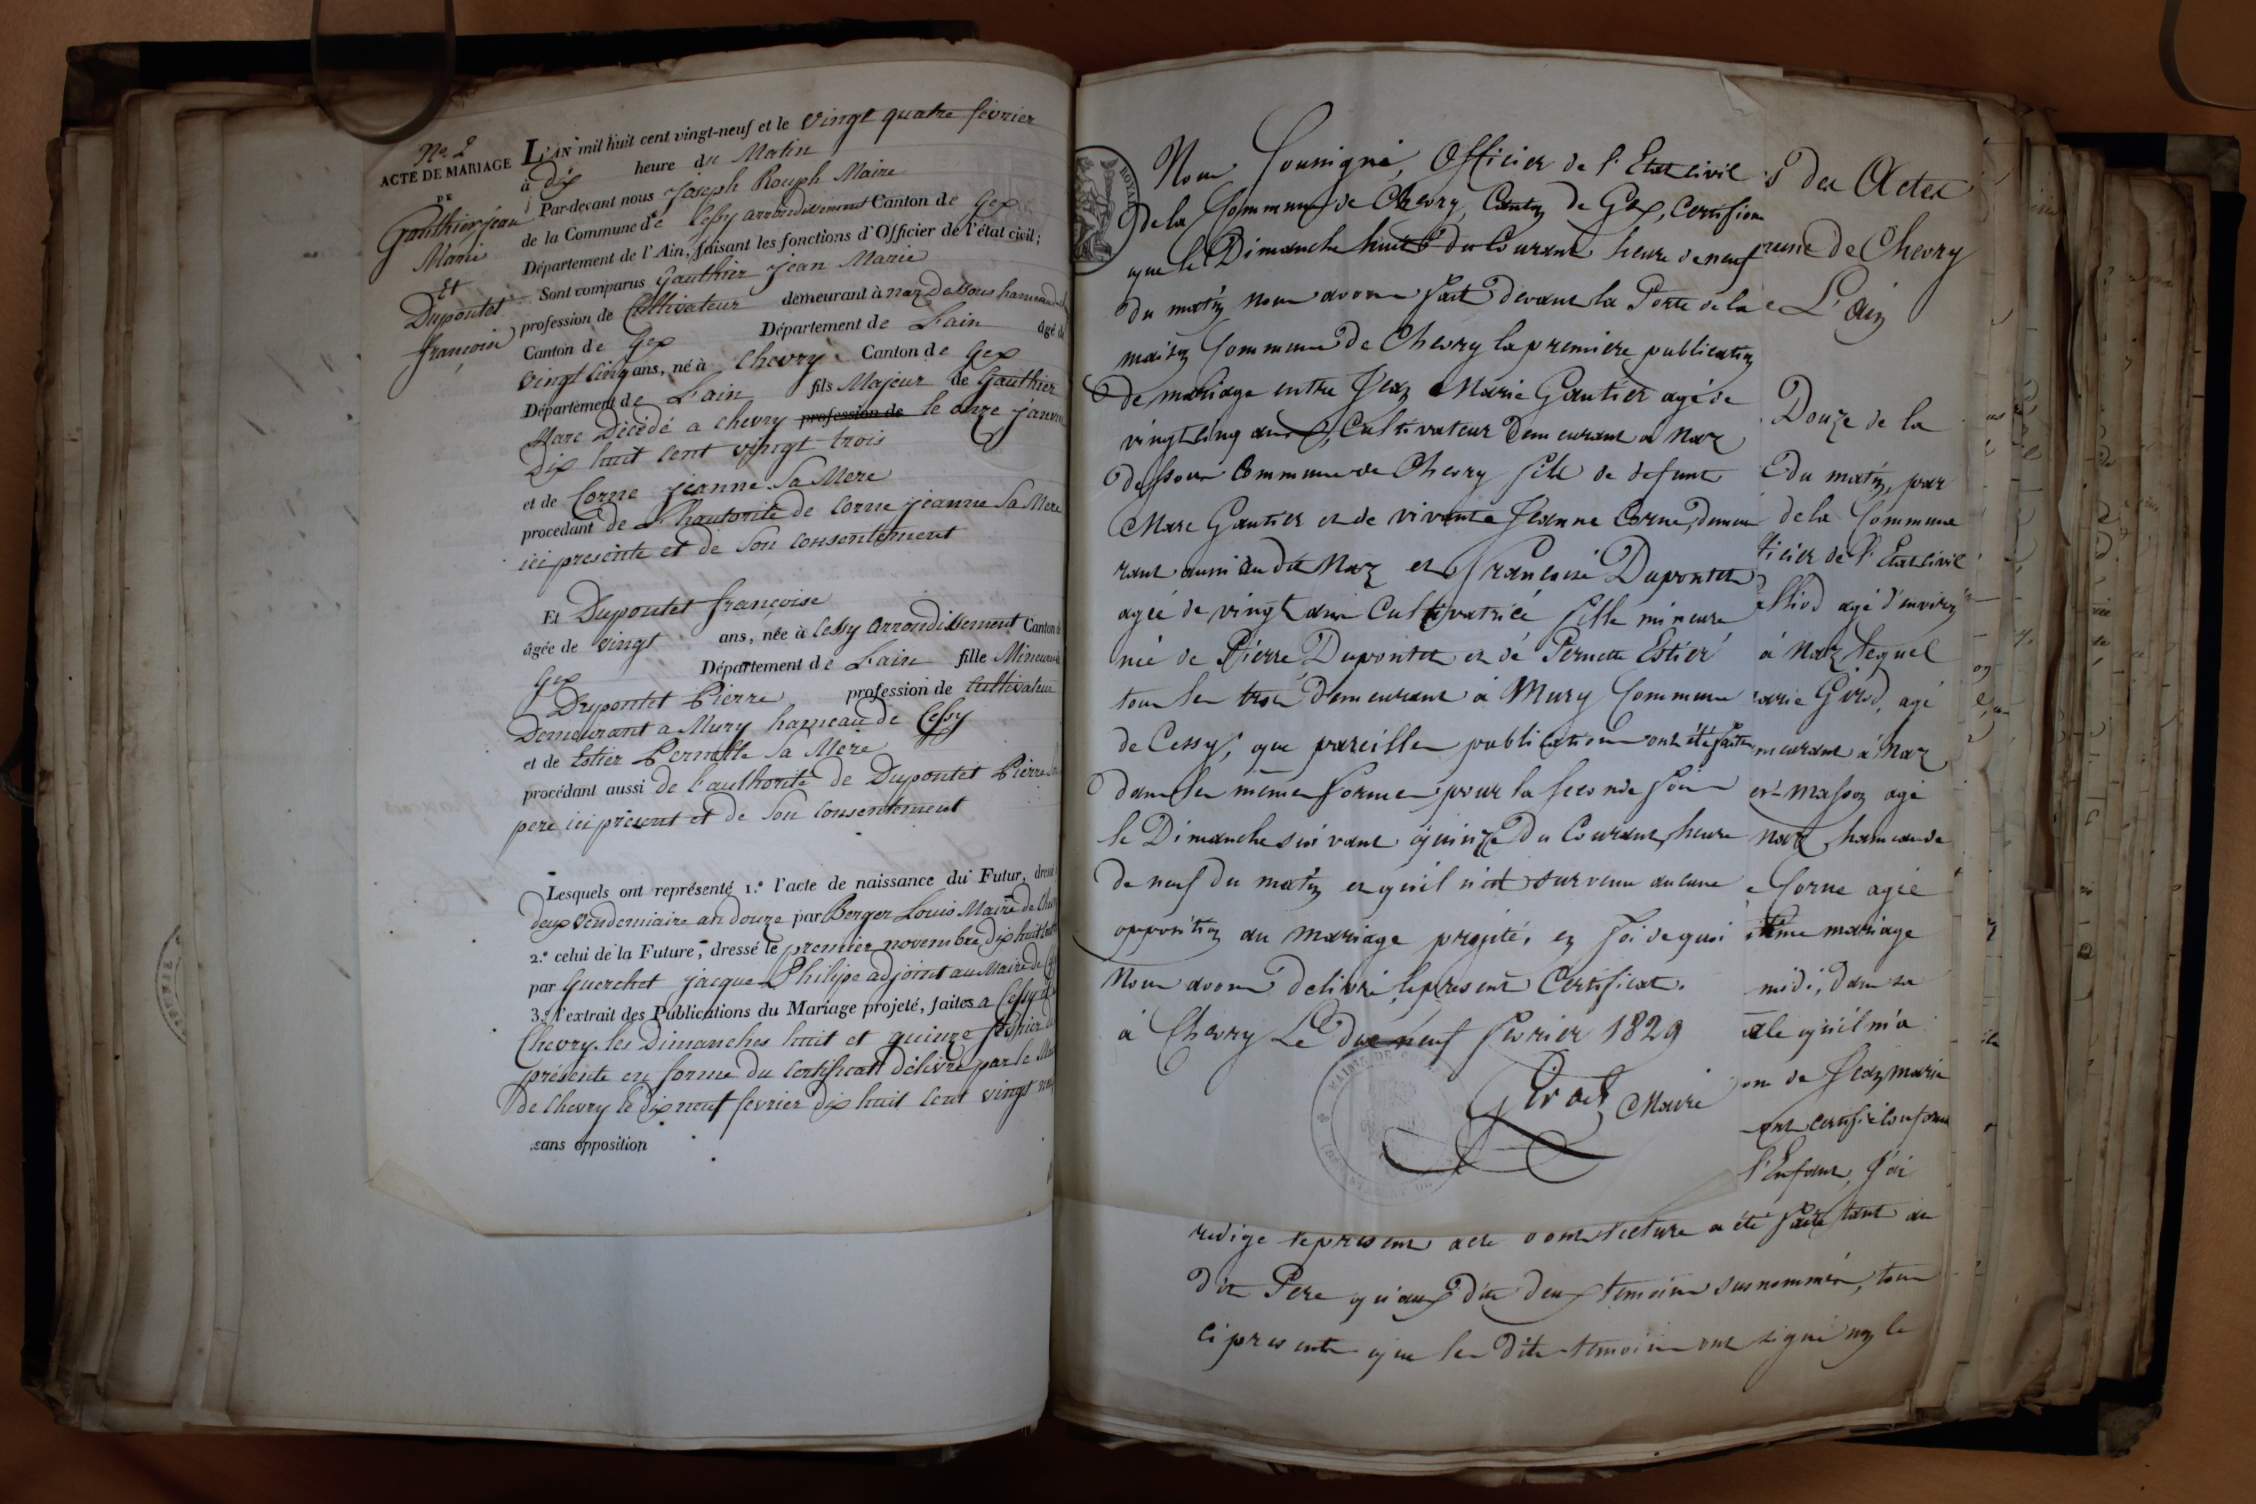 No. 2
ACTE DE MARIAGE
DE
Gauthier jean
Marie
Et
Dupontet
françoise
L'AN mil huit cent vingt-neuf et le vingt quatre fevrier
à dix heure du Matin
Par-devant nous joseph Rouph Maire
de la Commune de Cessy arrondissement Canton de Gex
Département de l'Ain, faisant les fonctions d'Officier de l'état civil;
Sont comparus Gauthier jean Marie
profession de Cultivateur demeurant à naz Dessous hameau
Canton de Gex Département de L'ain âgé de
vingt cinq ans, né à Chevry Canton de Gex
Département de L'ain fils Majeur de Gauthier
Marc Décédé a Chevry profession de le onze janvier
Dix huit cent vingt trois
et de Corne jeanne Sa Mere
procédant de L'hautorité de Corne jeanne Sa Mere
ici presente et de Son consentement
Et Dupontet françoise
âgée de vingt ans, née à Cessy arrondissement Canton de
Gex Département de L'ain fille Mineure
Dupontet Pierre profession de Cultivateur
Demeurant a Mury hameau de Cessy
et de Estier Pernette Sa Mere
procédant aussi de l'authorité de Dupontet Pierre
pere ici présent et de Son consentement
Lesquels ont représenté 1.° l'acte de naissance du Futur, dressé
deux Vendemiaire an douze par Berger Louis Maire de
2.° celui de la Future, dressé le premier novembre dix huit cent
par Guerchet jacque Philipe adjoint au Maire de
3.° l'extrait des Publications du Mariage projeté, faites a Cessy et
Chevry les Dimanches huit et quinze fevrier
présente en forme du Certificat délivré par le
De Chevry le dix neuf fevrier dix huit cent vingt neuf
sans opposition
Nous Soussigné, Officier de l'Etat civil
de la Commune de Chevry, Canton de Gex, Certifions
que le Dimanche huit du Courant heure de neuf
du matin nous avons fait devant la Porte de la
maison Commune de Chevry la premiere publication
de mariage entre Jean Marie Gautier agé de
vingt cinq ans, Cultivateur demeurant a Naz
dessous Commune de Chevry fils de defunt
Marc Gautier et de vivante Jeanne Corne, demeu
rant aussi au dit Naz et Françoise Dupontet
agée de vingt ans Cultivatrice fille mineure
née de Pierre Dupontet et de Pernette Estier
tous les trois demeurant à Mury Commune
de Cessy, que pareilles publications ont été faites
dans les mêmes formes pour la seconde fois
le Dimanche suivant quinze du Courant, heure
de neuf du matin et qu'il n'est survenu aucune
opposition au mariage projeté, en foi de quoi
Nous avons délivré le présent Certificat.
à Chevry Le dix neuf fevrier 1829
Girod Maire
s des Actes
mune de Chevry
L'ain
Douze de la
du matin, par
de la Commune
ficier de l'Etat civil
agé d'environ
à Naz lequel
arie Girod, agé
meurant à Naz
Masson agé
Naz hameau de
Corne agée
mariage
midi, dans sa
ale qu'il m'a
on de Jean marie
ont certifié conforme
l'Enfant, J'ai
redigé le présent acte dont lecture a été faite tant au
dit Pere qu'aux dits deux temoins susnommés, tous
ci presents que les dits temoins ont signé non le